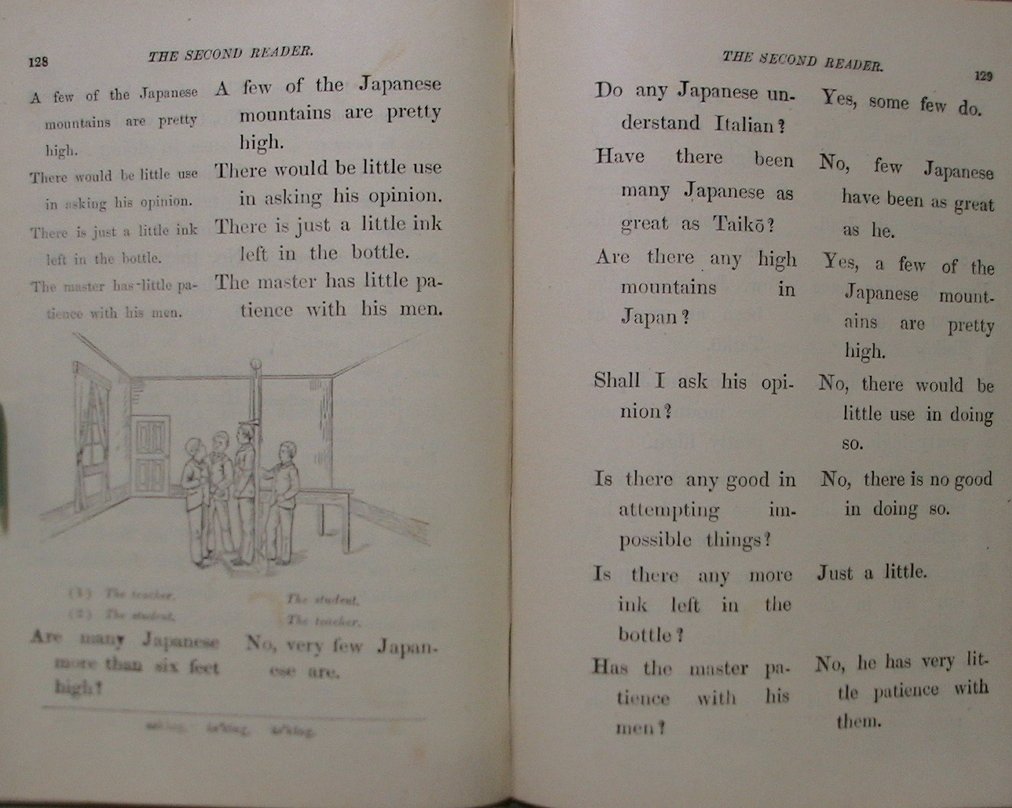 128
THE SECOND READER.
A few of the Japanese
mountains are pretty
high.
There would be little use
in asking his opinion.
There is just a little ink
left in the bottle.
The master has little pa-
tience with his men.
A few of the Japanese
mountains are pretty
high.
There would be little use
in asking his opinion.
There is just a little ink
left in the bottle.
The master has little pa-
tience with his men.
(1) The teacher.
(2) The student.
The student.
The teacher.
Are many Japanese
more than six feet
high?
No, very few Japan-
ese are.
THE SECOND READER.
129
Do any Japanese un-
derstand Italian?
Yes, some few do.
Have there been
many Japanese as
great as Taikō?
No, few Japanese
have been as great
as he.
Are there any high
mountains in
Japan?
Yes, a few of the
Japanese mount-
ains are pretty
high.
Shall I ask his opi-
nion?
No, there would be
little use in doing
so.
Is there any good in
attempting im-
possible things?
No, there is no good
in doing so.
Is there any more
ink left in the
bottle?
Just a little.
Has the master pa-
tience with his
men?
No, he has very lit-
tle patience with
them.